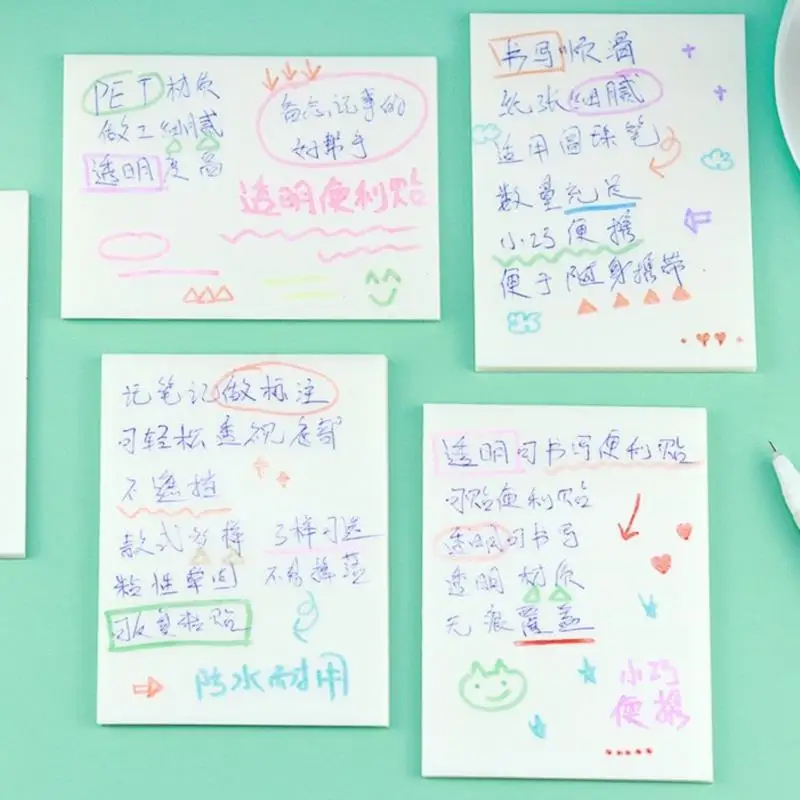 PET材质
做工细腻
透明度高
备忘记事的
好帮手
透明便利贴
书写顺滑
纸张细腻
适用圆珠笔
数量充足
小巧便携
便于随身携带
记笔记做标注
可轻松透视底部
不遮挡
款式多样
多样可选
粘性牢固
不易掉落
可反复粘贴
防水耐用
透明可书写便利贴
可贴便利贴
透明可书写
透明材质
无痕覆盖
小巧
便携